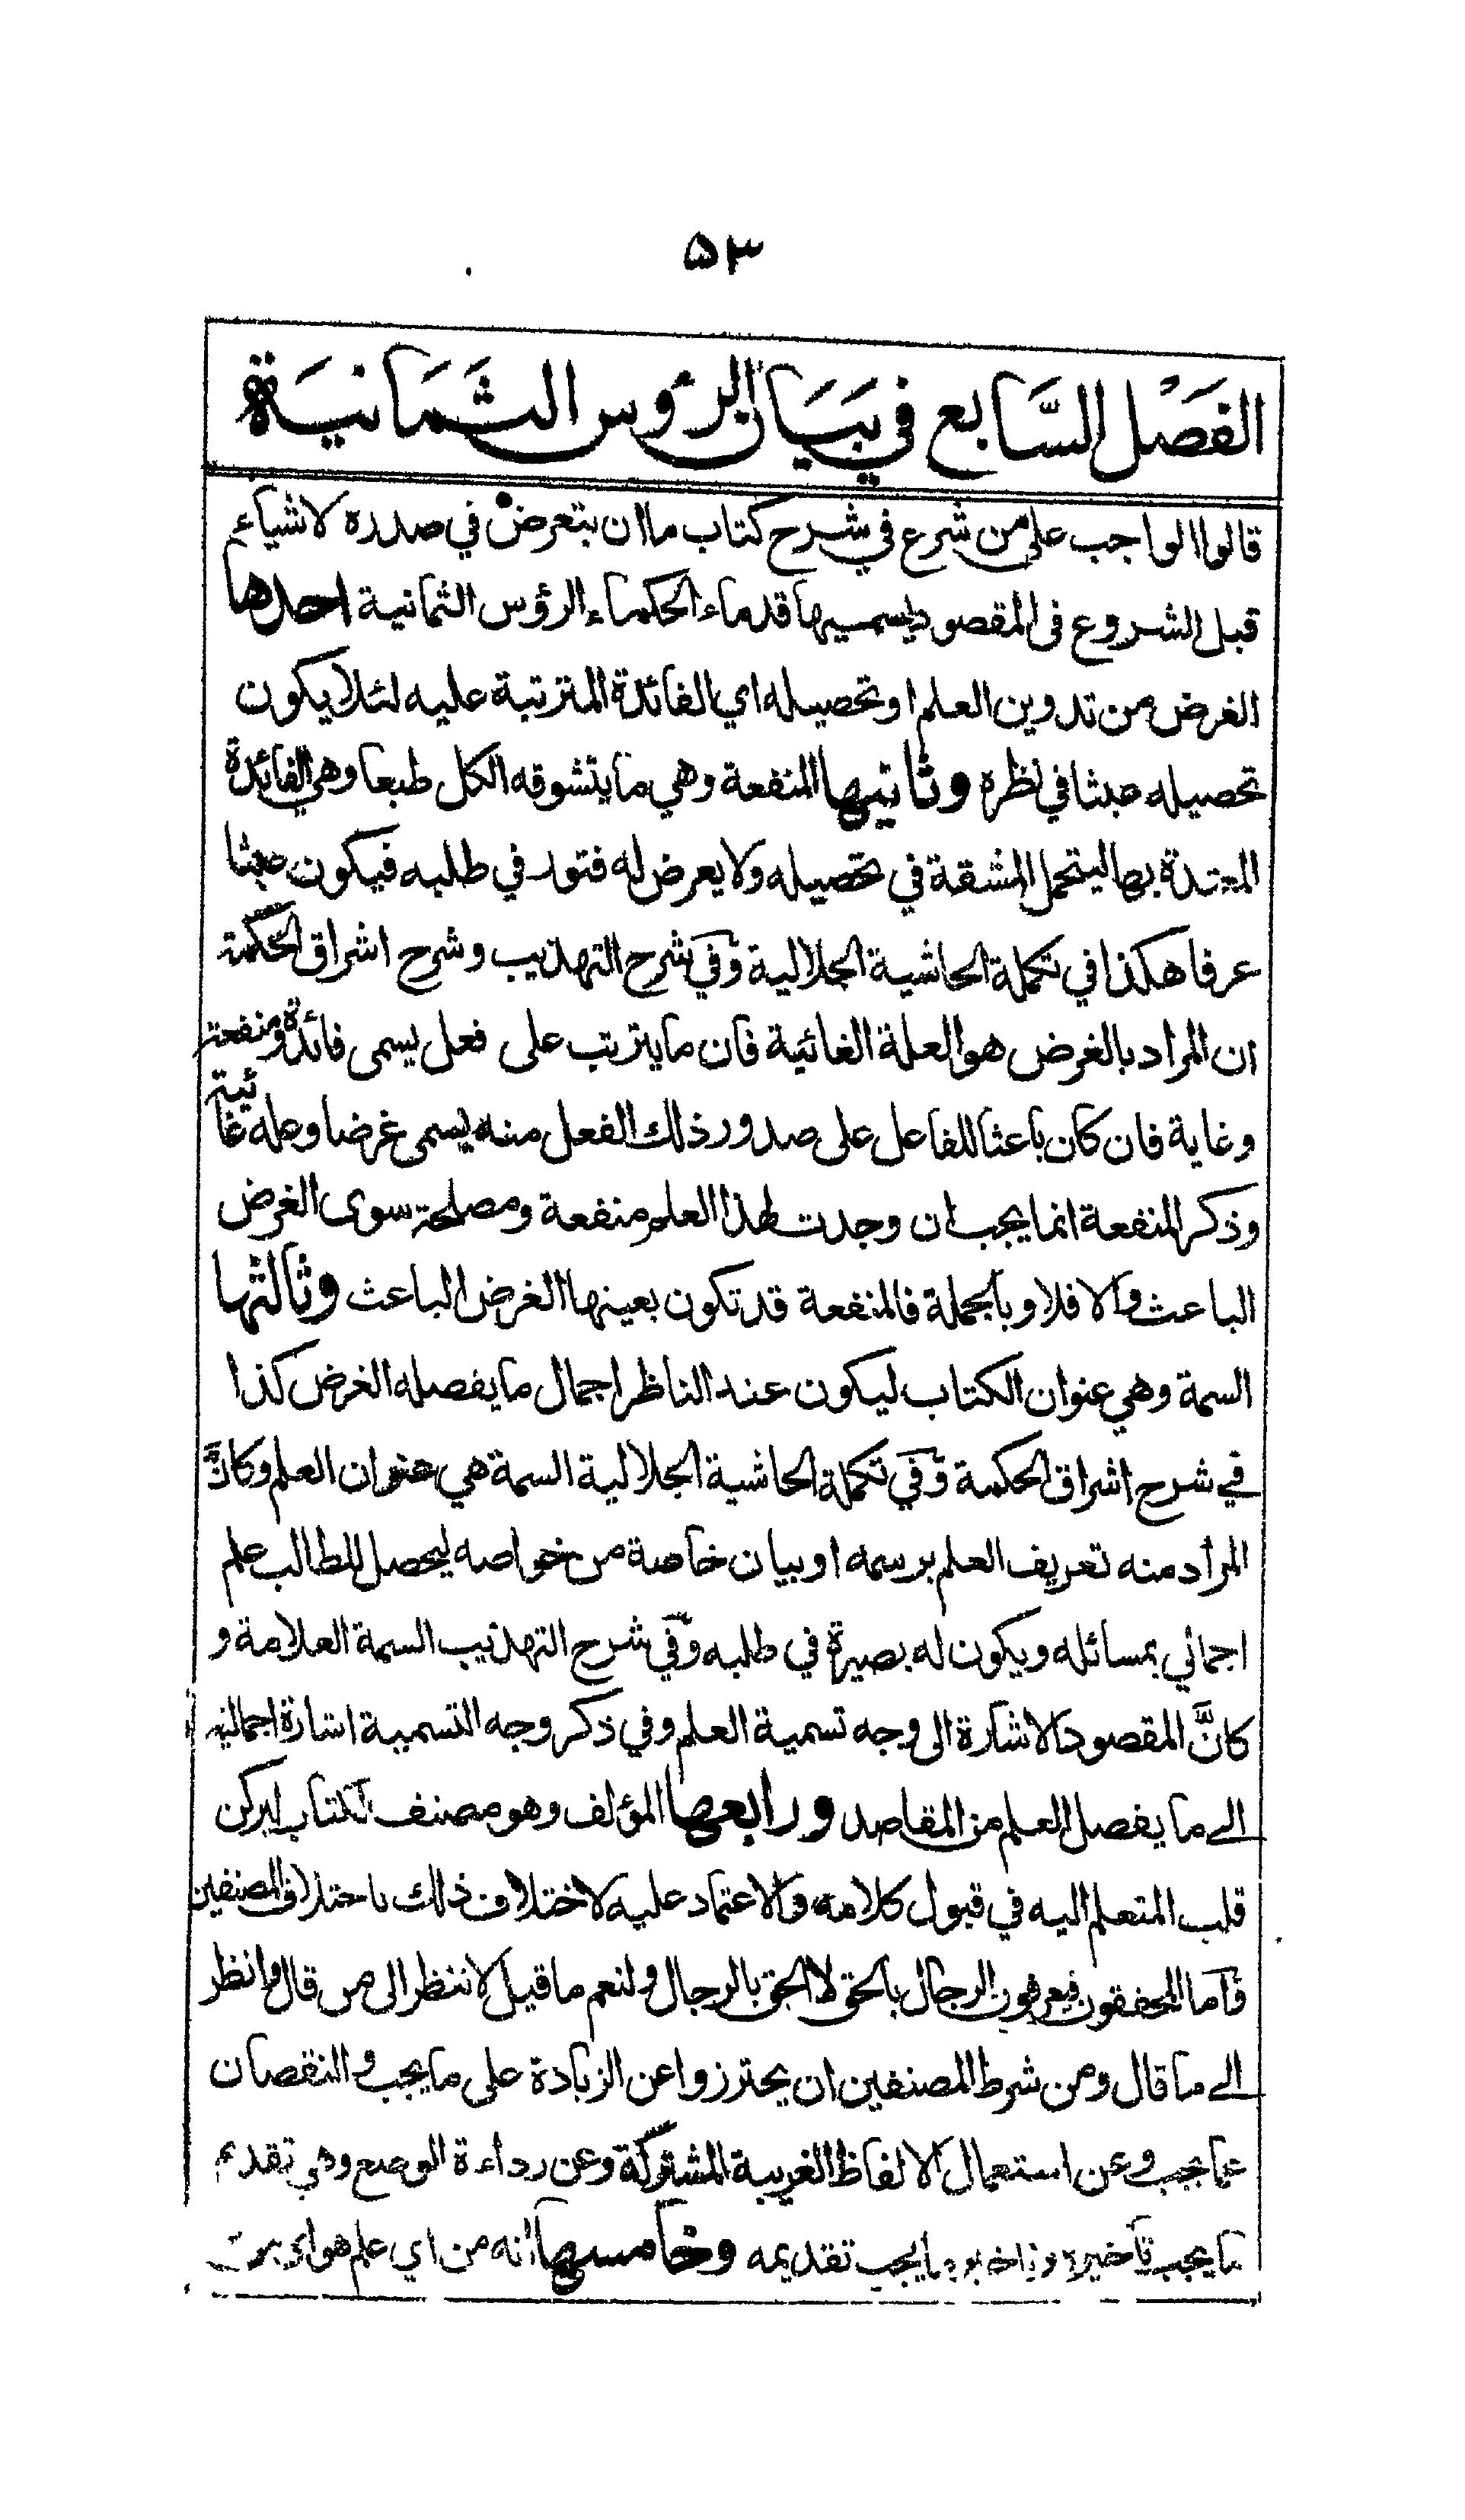 ٥٣
الفَصْل السَّابع في بَيَان الرؤس الثَمَانيَة
قالوا الواجب على من شرع في شرح كتاب ما ان يتعرض في صدره لاشياء
قبل الشروع فى المقصود يسميها قدماء الحكماء الرؤس الثمانية احدها
الغرض من تدوين العلم او تحصيله اي الفائدة المترتبة عليه لئلا يكون
تحصيله عبثا في نظره وثانيها المنفعة وهي ما يتشوقه الكل طبعا وهي الفائدة
المعتدة بها ليتحمل المشقة في تحصيله ولا يعرض له فتور في طلبه فيكون عبثا
عرفا هكذا في تكملة الحاشية الجلالية وفي شرح التهذيب وشرح اشراق الحكمة
ان المراد بالغرض هو العلة الغائية فان ما يترتب على فعل يسمى فائدة ومنفعة
وغاية فان كان باعثا للفاعل على صدور ذلك الفعل منه يسمى غرضا وعله غائية
وذكر المنفعة انما يجب ان وجدت لهذا العلم منفعة ومصلحة سوى الغرض
الباعث والا فلا وبالجملة فالمنفعة قد تكون بعينها الغرض الباعث وثالثها
السمة وهي عنوان الكتاب ليكون عند الناظر اجمال ما يفصله الغرض كذا
في شرح اشراق الحكمة وفي تكملة الحاشية الجلالية السمة هي عنوان العلم وكانَّ
المراد منه تعريف العلم برسمه او بيان خاصة من خواصه ليحصل للطالب علم
اجمالي بمسائله ويكون له بصيرة في طلبه وفي شرح التهذيب السمة العلامة و
كانَّ المقصود الاشارة الى وجه تسمية العلم وفي ذكر وجه التسمية اشارة اجمالية
الى ما يفصل العلم من المقاصد ورابعها المؤلف وهو مصنف الكتاب ليركن
قلب المتعلم اليه في قبول كلامه والاعتماد عليه لاختلاف ذلك باختلاف المصنفين
واما المحققون فيعرفون الرجال بالحق لا الحق بالرجال ولنعم ما قيل لا تنظر الى من قال وانظر
الى ما قال ومن شرط المصنفين ان يحترزوا عن الزيادة على ما يجب والنقصان
عما يجب وعن استعمال الالفاظ الغريبة المشتركة وعن رداءة الوضع وهي تقديم
ما يجب تأخيره وتاخير ما يجب تقديمه وخامسها انه من اي علم هو اي